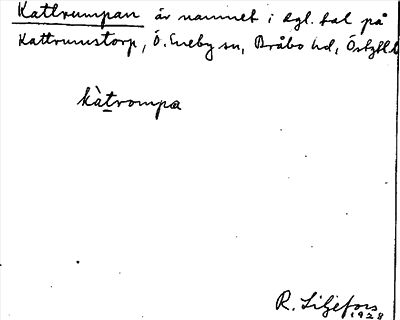 Kattrumpan är namnet i dgl. tal på
Kattrumstorp, Ö. Eneby sn, Bråbo hd, Östgötl.
kàtrompa
R. Liljefors
1928